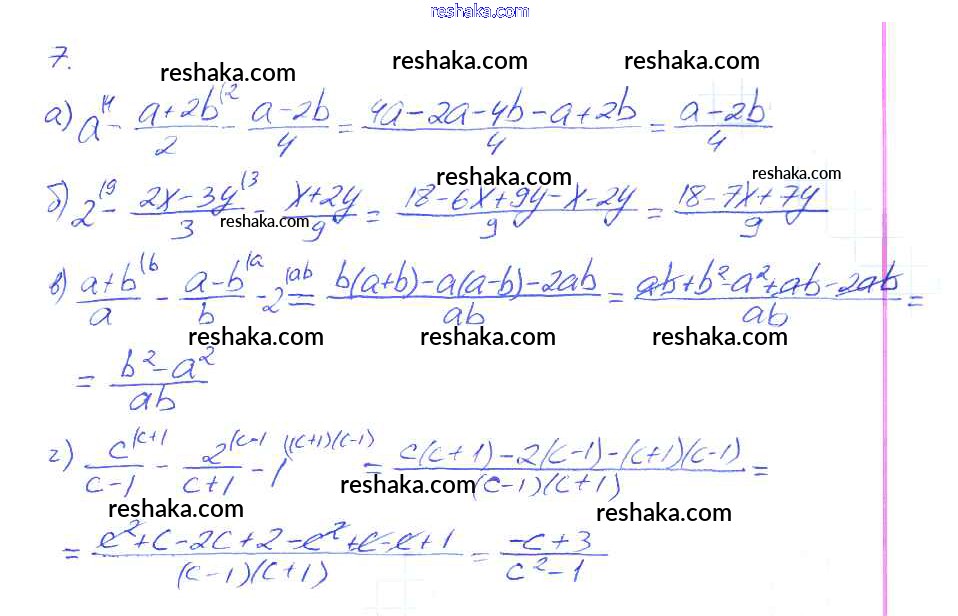 reshaka.com
7.
reshaka.com reshaka.com reshaka.com
а) a^(4 - (a+2b)/2^(2 - (a-2b)/4 = (4a-2a-4b-a+2b)/4 = (a-2b)/4
reshaka.com reshaka.com
б) 2^(9 - (2x-3y)/3^(3 - (x+2y)/9 = (18-6x+9y-x-2y)/9 = (18-7x+7y)/9
reshaka.com
в) (a+b)/a^(b - (a-b)/b^(a - 2^(ab = (b(a+b)-a(a-b)-2ab)/ab = (ab+b²-a²+ab-2ab)/ab =
reshaka.com reshaka.com reshaka.com
= (b²-a²)/ab
г) c/(c-1)^(c+1 - 2/(c+1)^(c-1 - 1^((c+1)(c-1) = (c(c+1)-2(c-1)-(c+1)(c-1))/((c-1)(c+1)) =
reshaka.com
reshaka.com reshaka.com
= (c²+c-2c+2-c²+c-c+1)/((c-1)(c+1)) = (-c+3)/(c²-1)